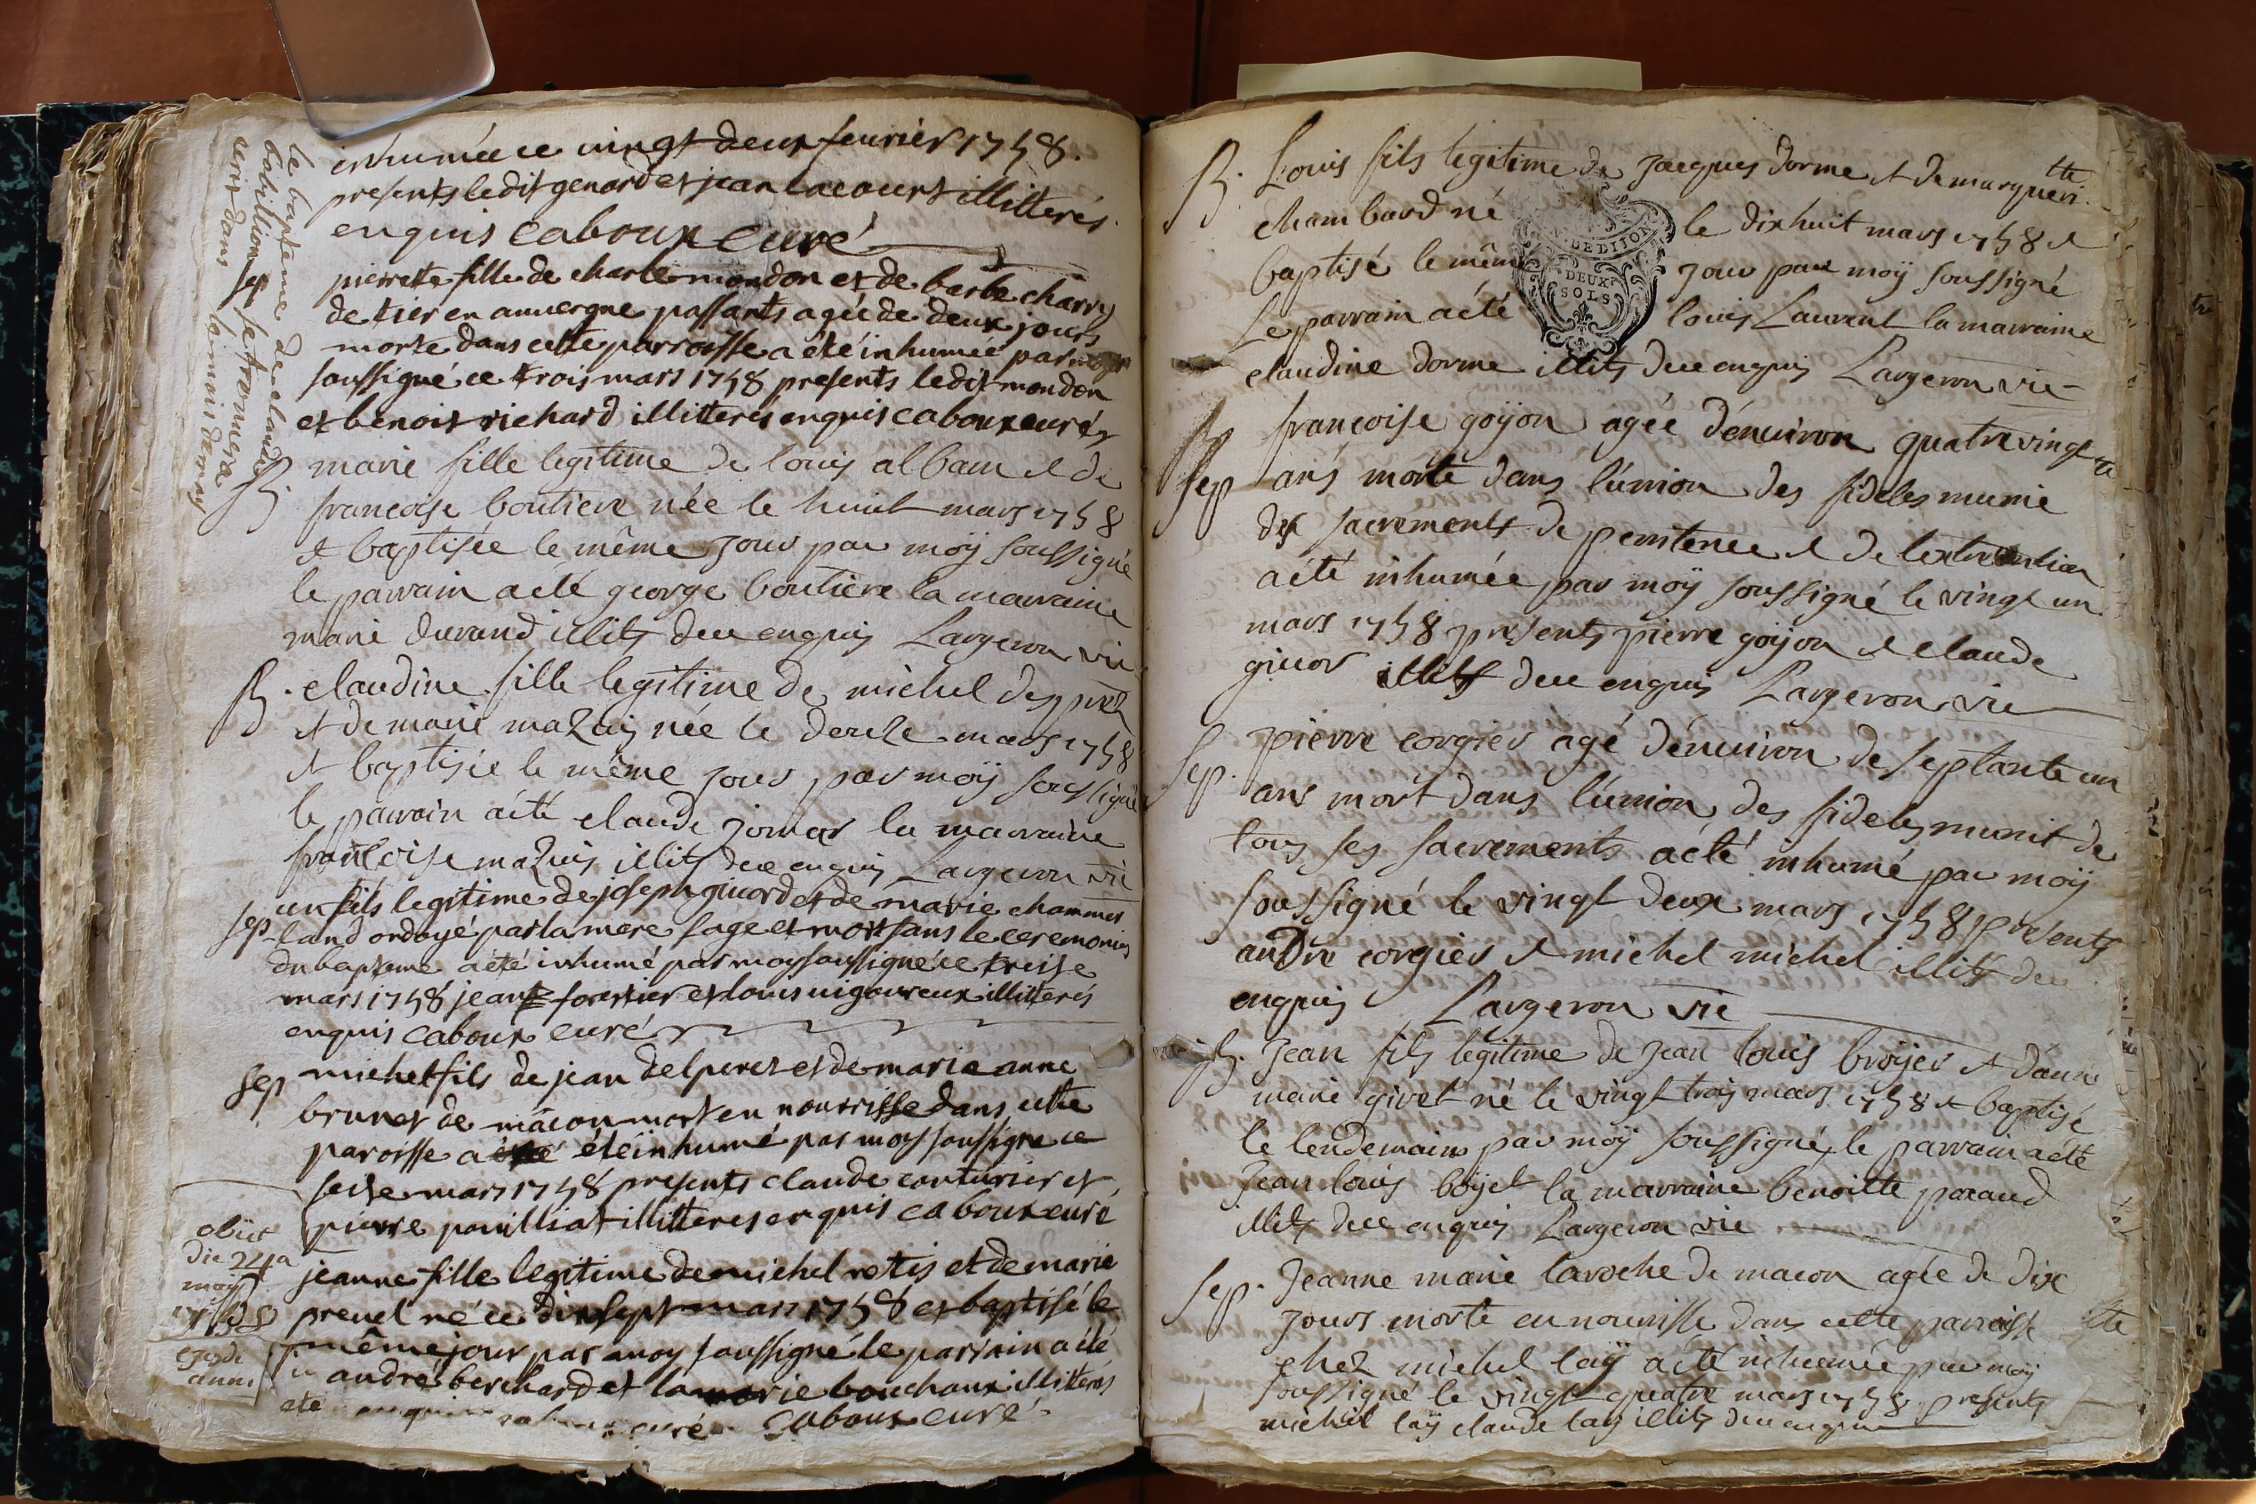 inhumée ce vingt deux feurier 1758.
presents ledit genard et jean lacourt illitterés
enquis caboux curé
pierrette fille de charle mondon et de barbe charry
de tier en auuergne passants agée de deux jours
morte dans cette parroisse a été inhumée par moy
soussigné ce trois mars 1758 presents ledit mondon
et benoit richard illitteres enquis caboux curé
le bapteme de claude
se trouuera
ecrit dans le mois dernier
B.
marie fille legitime de louis alban et de
francoise boutiere née le huict mars 1758
et baptisée le même jour par moÿ soussigné
le parrain a été george boutiere la marraine
marie durand illits deue enquis Largeron vic
B. claudine fille legitime de michel desprez
et de marie mazuÿ née le douze mars 1758
et baptisée le même jour par moÿ soussigné
le parrain a été claude la marraine
francoise mazuis illits deue enquis Largeron vic
un fils legitime de joseph giuord et de marie chammer
sep land ondoyé par la mere sage et mort sans le ceremonies
du bapteme a été inhumé par moy soussigné ce treise
mars 1758 jean forestier et louis uigoureux illitterés
enquis caboux curé
sep michel fils de jean delperet et de marie anne
brunet de mâcon mort en nourrisse dans cette
paroisse a été inhumé par moy soussigne ce
seise mars 1758 presents claude couturier et
pierre pauilliat illitteres enquis caboux curé
obiit
die 24a
1758
jeanne fille legitime de michel rotis et de marie
preuel né ce dix sept mars 1758 et baptisé le
même jour par moy soussigné le parrain a été
andré berchard et la marie bouchaux illitterés
caboux curé
B. Louis fils legitime de Jacques dorme et de margueritte
chambard né le dixhuit mars 1758 et
baptisé le même jour par moÿ soussigné
DEUX
SOLS
Le parrain a été louis Laurent la marraine
claudine dorme illits deue enquis Largeron vic
francoise goÿon agée d'enuiron quatre vingt
sep ans morte dans l'union des fideles munie
des sacrements de penitence et de lextremontion
a été inhumée par moÿ soussigné le vingt un
mars 1758 presents pierre goÿon et claude
giuor illits deue enquis Largeron vic
sep. pierre corgier agé d'enuiron de septante un
ans mort dans l'union des fideles munit de
tous ses sacrements a été inhumé par moÿ
soussigné le vingt deux mars 1758 presents
andre corgier et michel michel illits deu
enquis Largeron vic
B. Jean fils legitime de Jean louis broÿer et d'anne
marie givet né le vingt trois mars 1758 et baptisé
le lendemain par moÿ soussigné le parrain a été
Jean louis boÿet la marraine benoitte paraud
illits deue enquis Largeron vic
sep. Jeanne marie laroche de macon agée de dix
jours morte en nourrisse dans cette parroisse
chez michel laÿ a été inhumée par moÿ
soussigné le vingt quatre mars 1758 presents
michel laÿ claude laÿ illits deu enquis